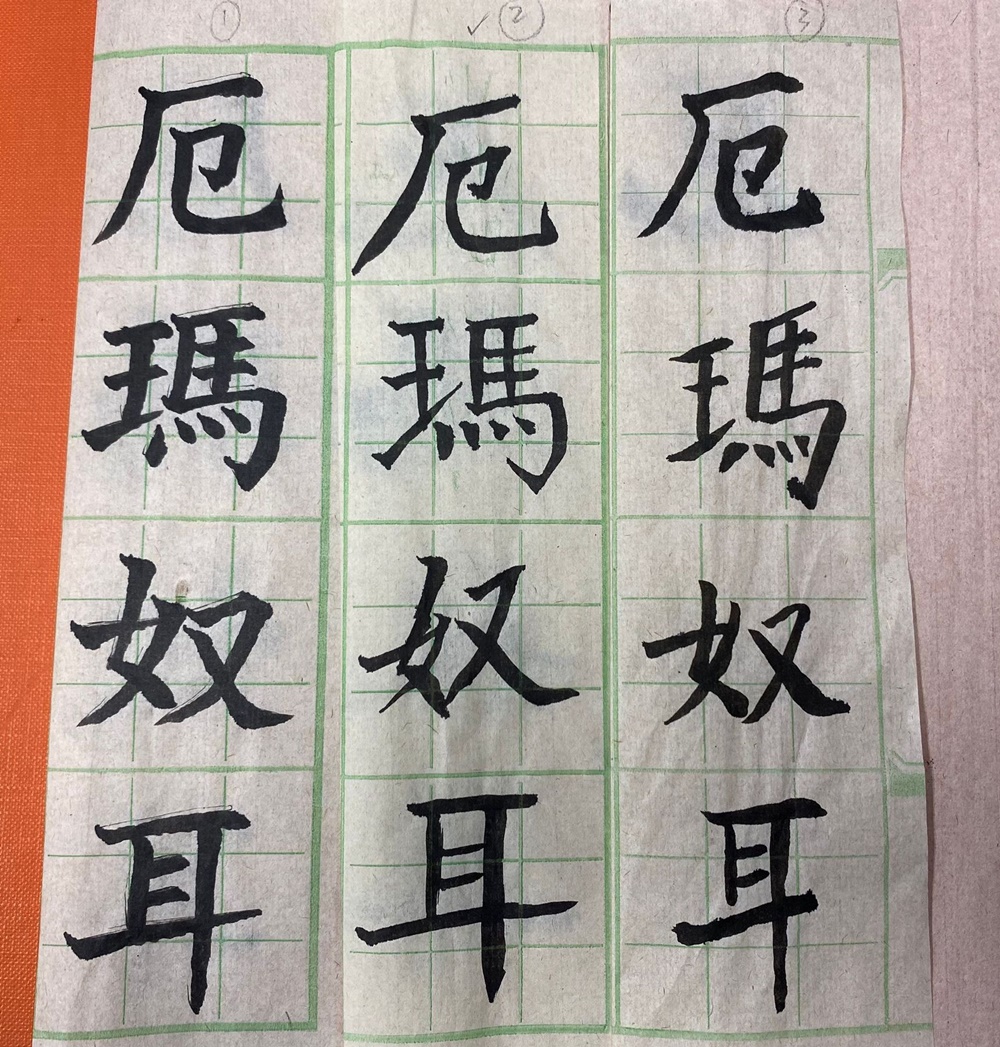 ① ✓② ③
厄瑪奴耳
厄瑪奴耳
厄瑪奴耳